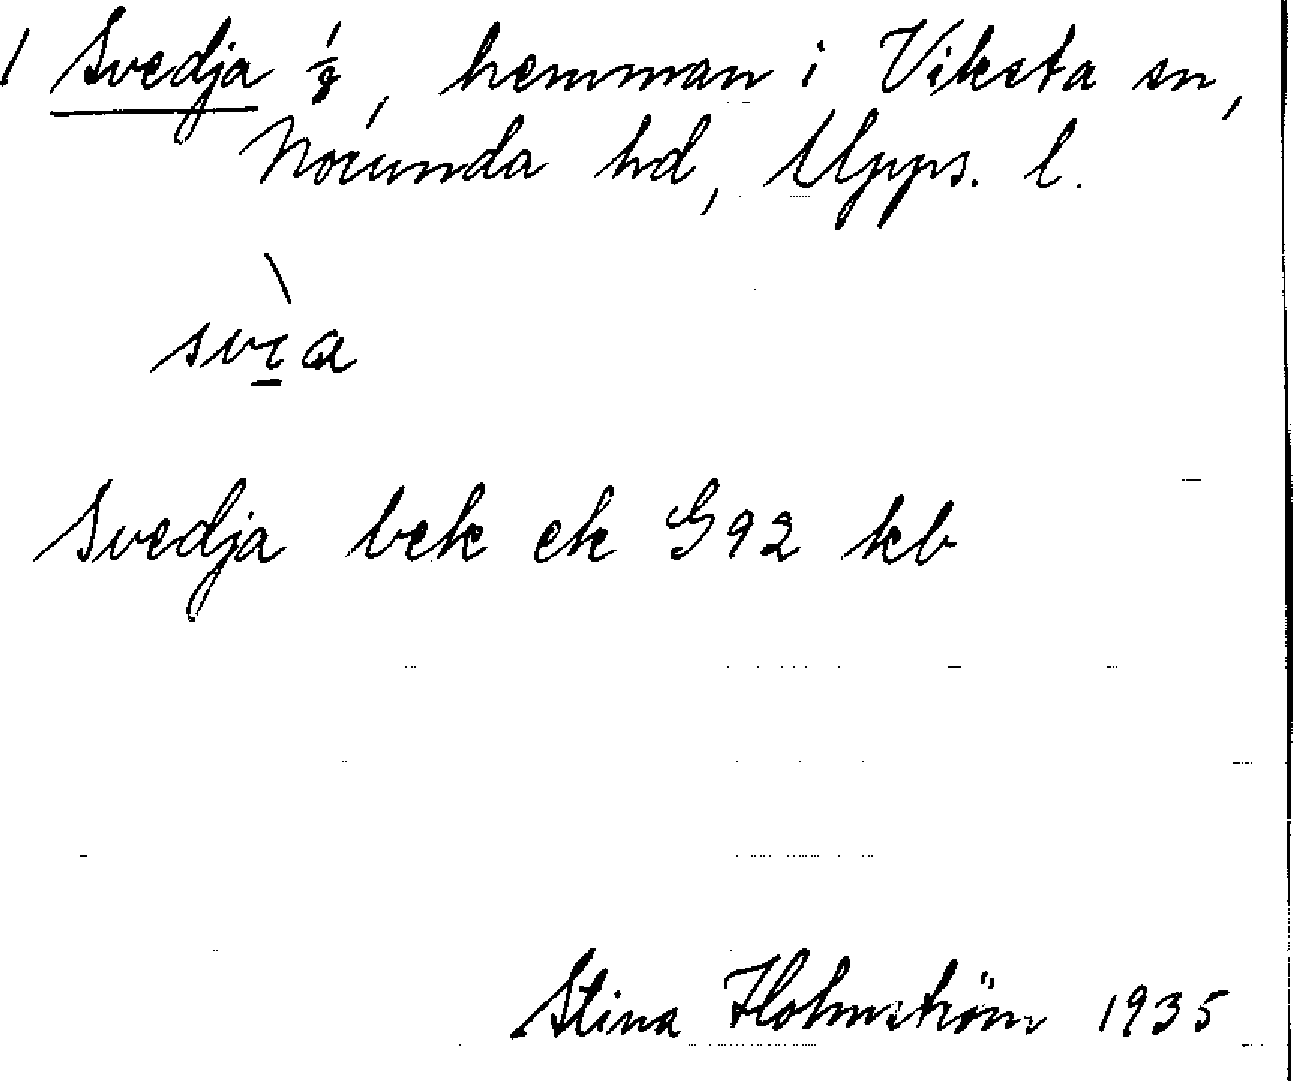 1 Svedja 1/8, hemman i Viksta sn,
Norunda hd, Upps. l.
svìa
Svedja bek ek G92 kb
Stina Holmström 1935